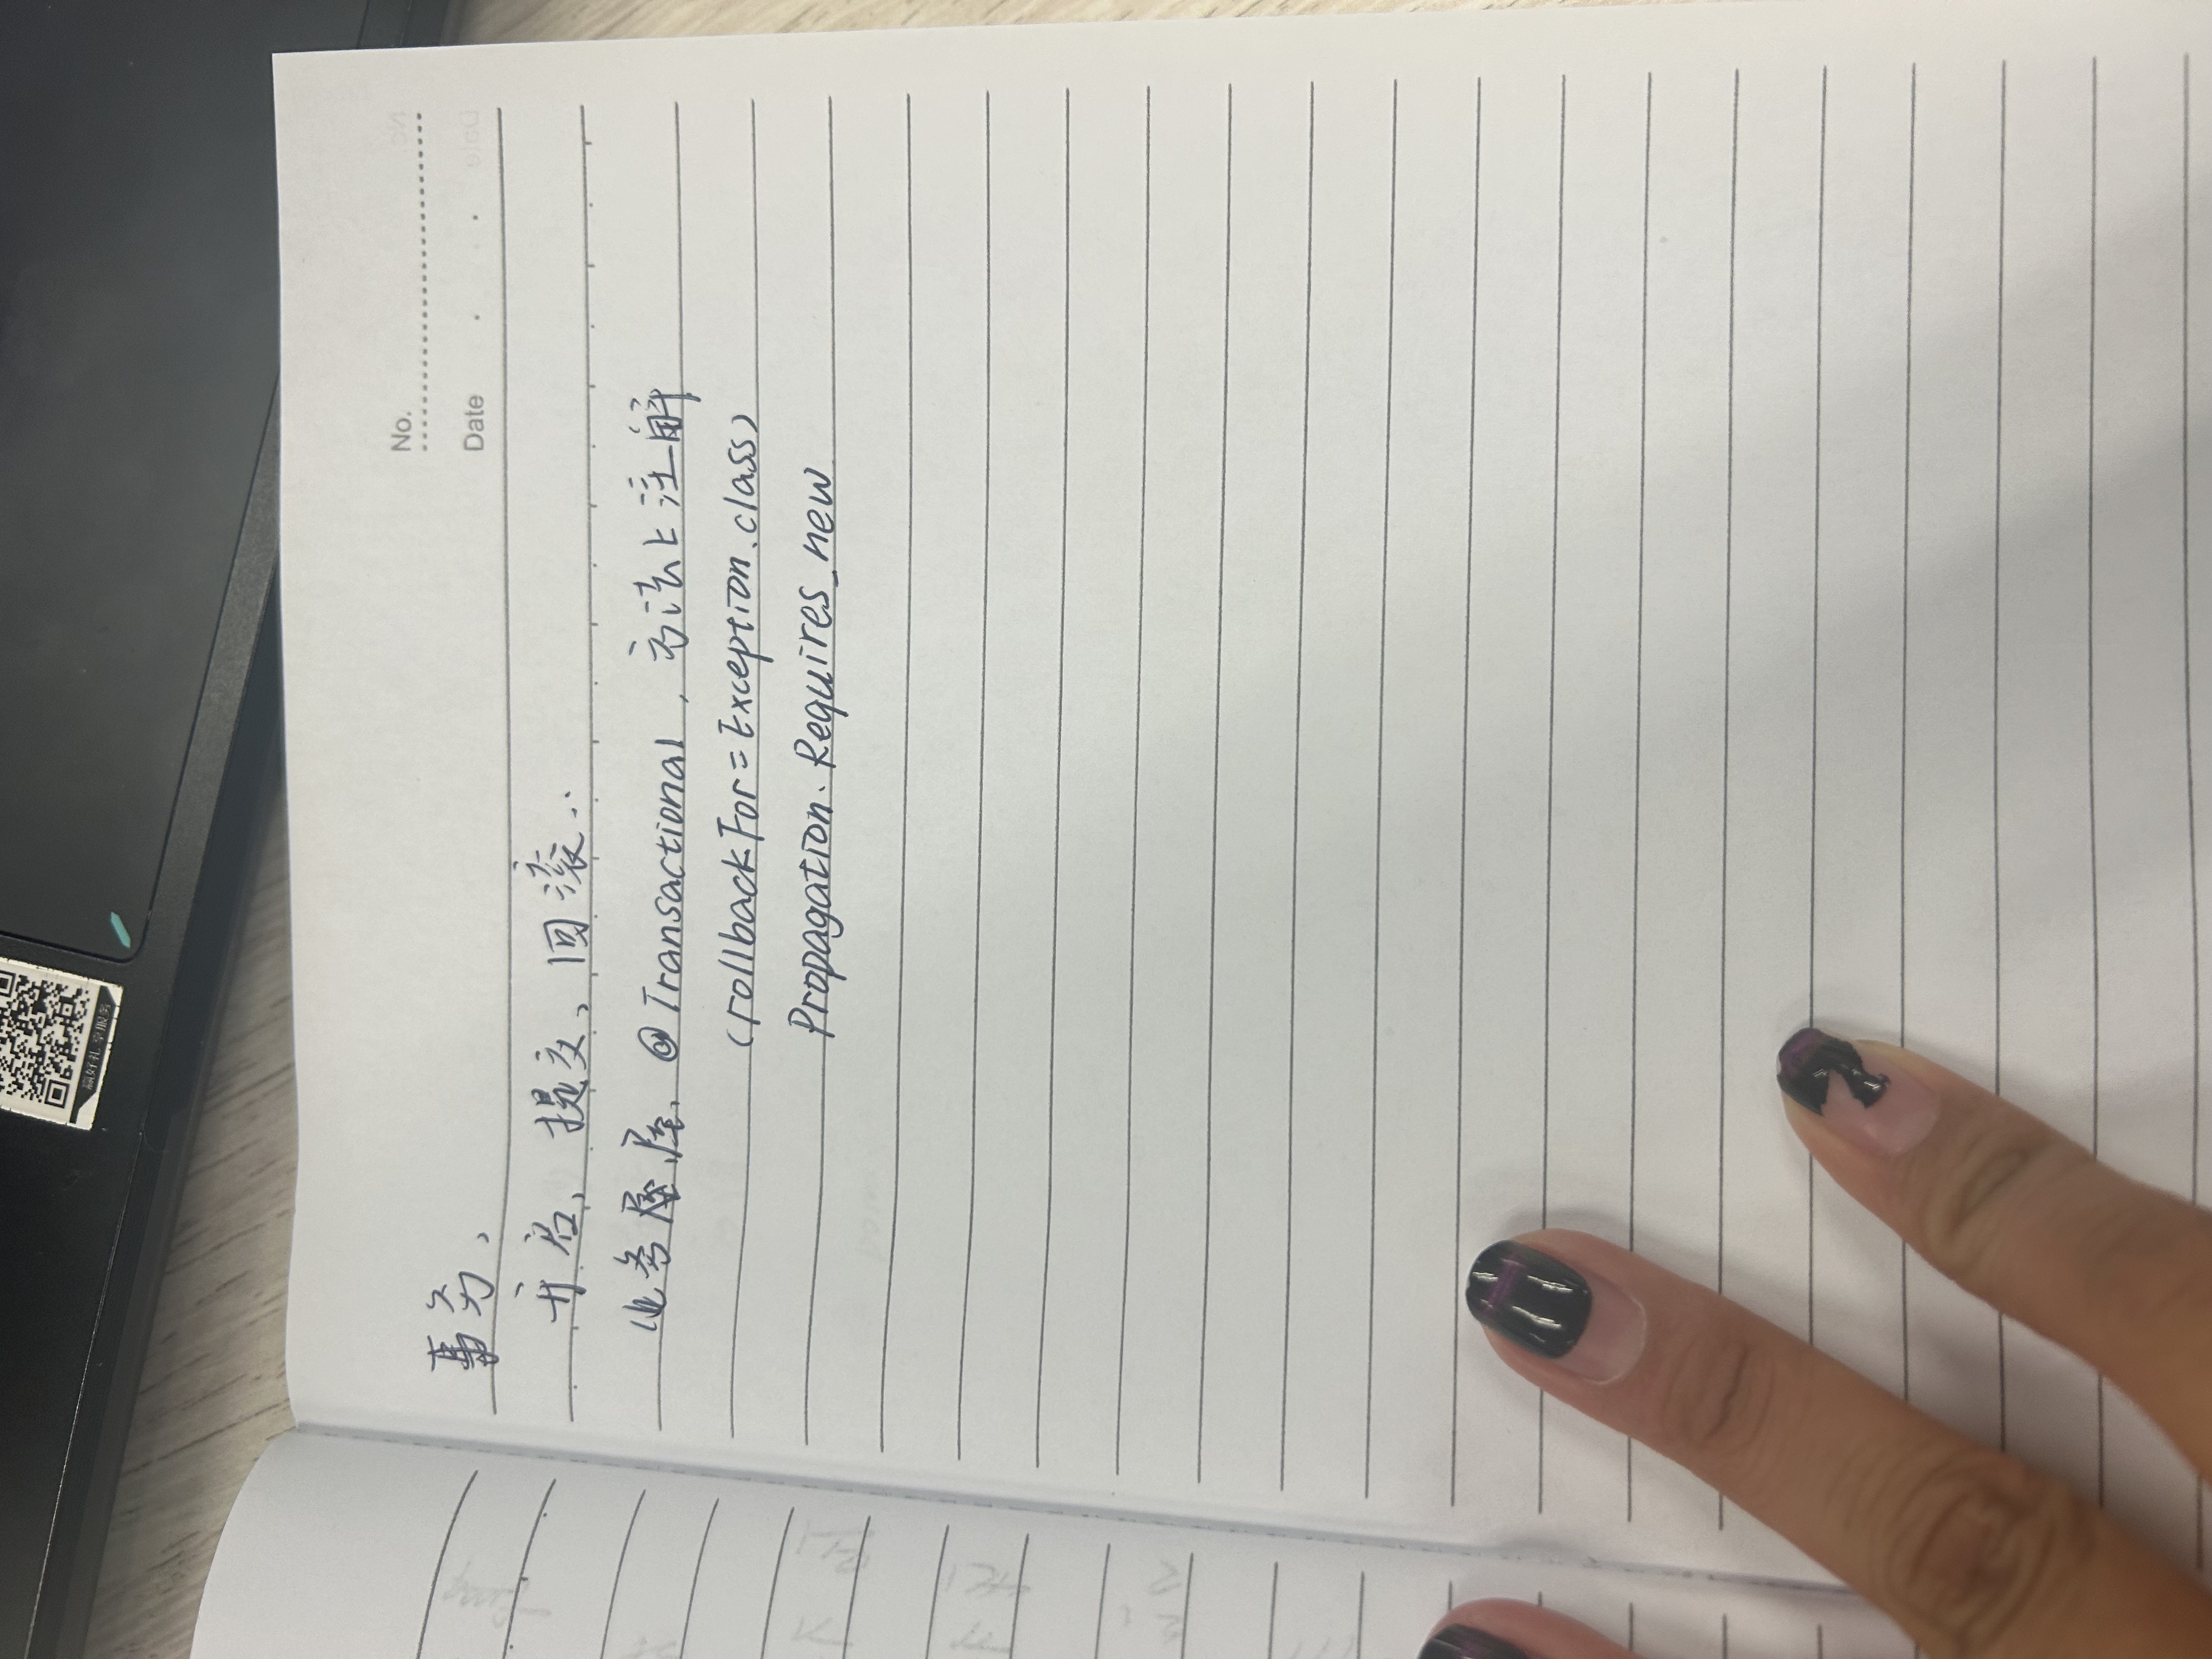 赢好礼 享服务
No.
Date
事务,
开启, 提交、回滚..
业务层 层. @Transactional , 方法上注解
(rollbackFor=Exception.class)
Propagation.Requires_new